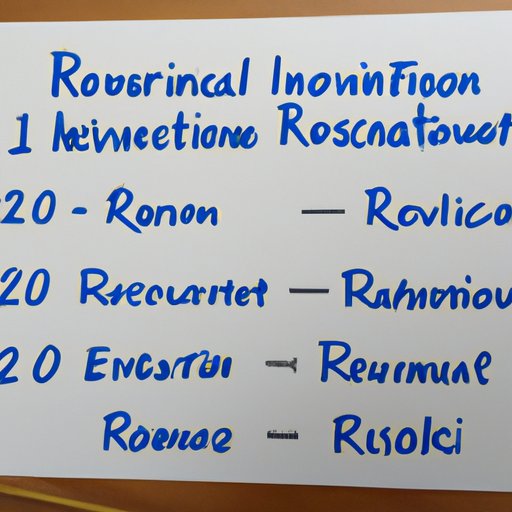 Rovsrincal InovinFroon
1 Aeivveetiono Roscnatouct
20 - Ronon — Rovlico
20 Rrecurret — Rahmoniou
20 Encsrtui - Reurmune
Roenoe - Risolci